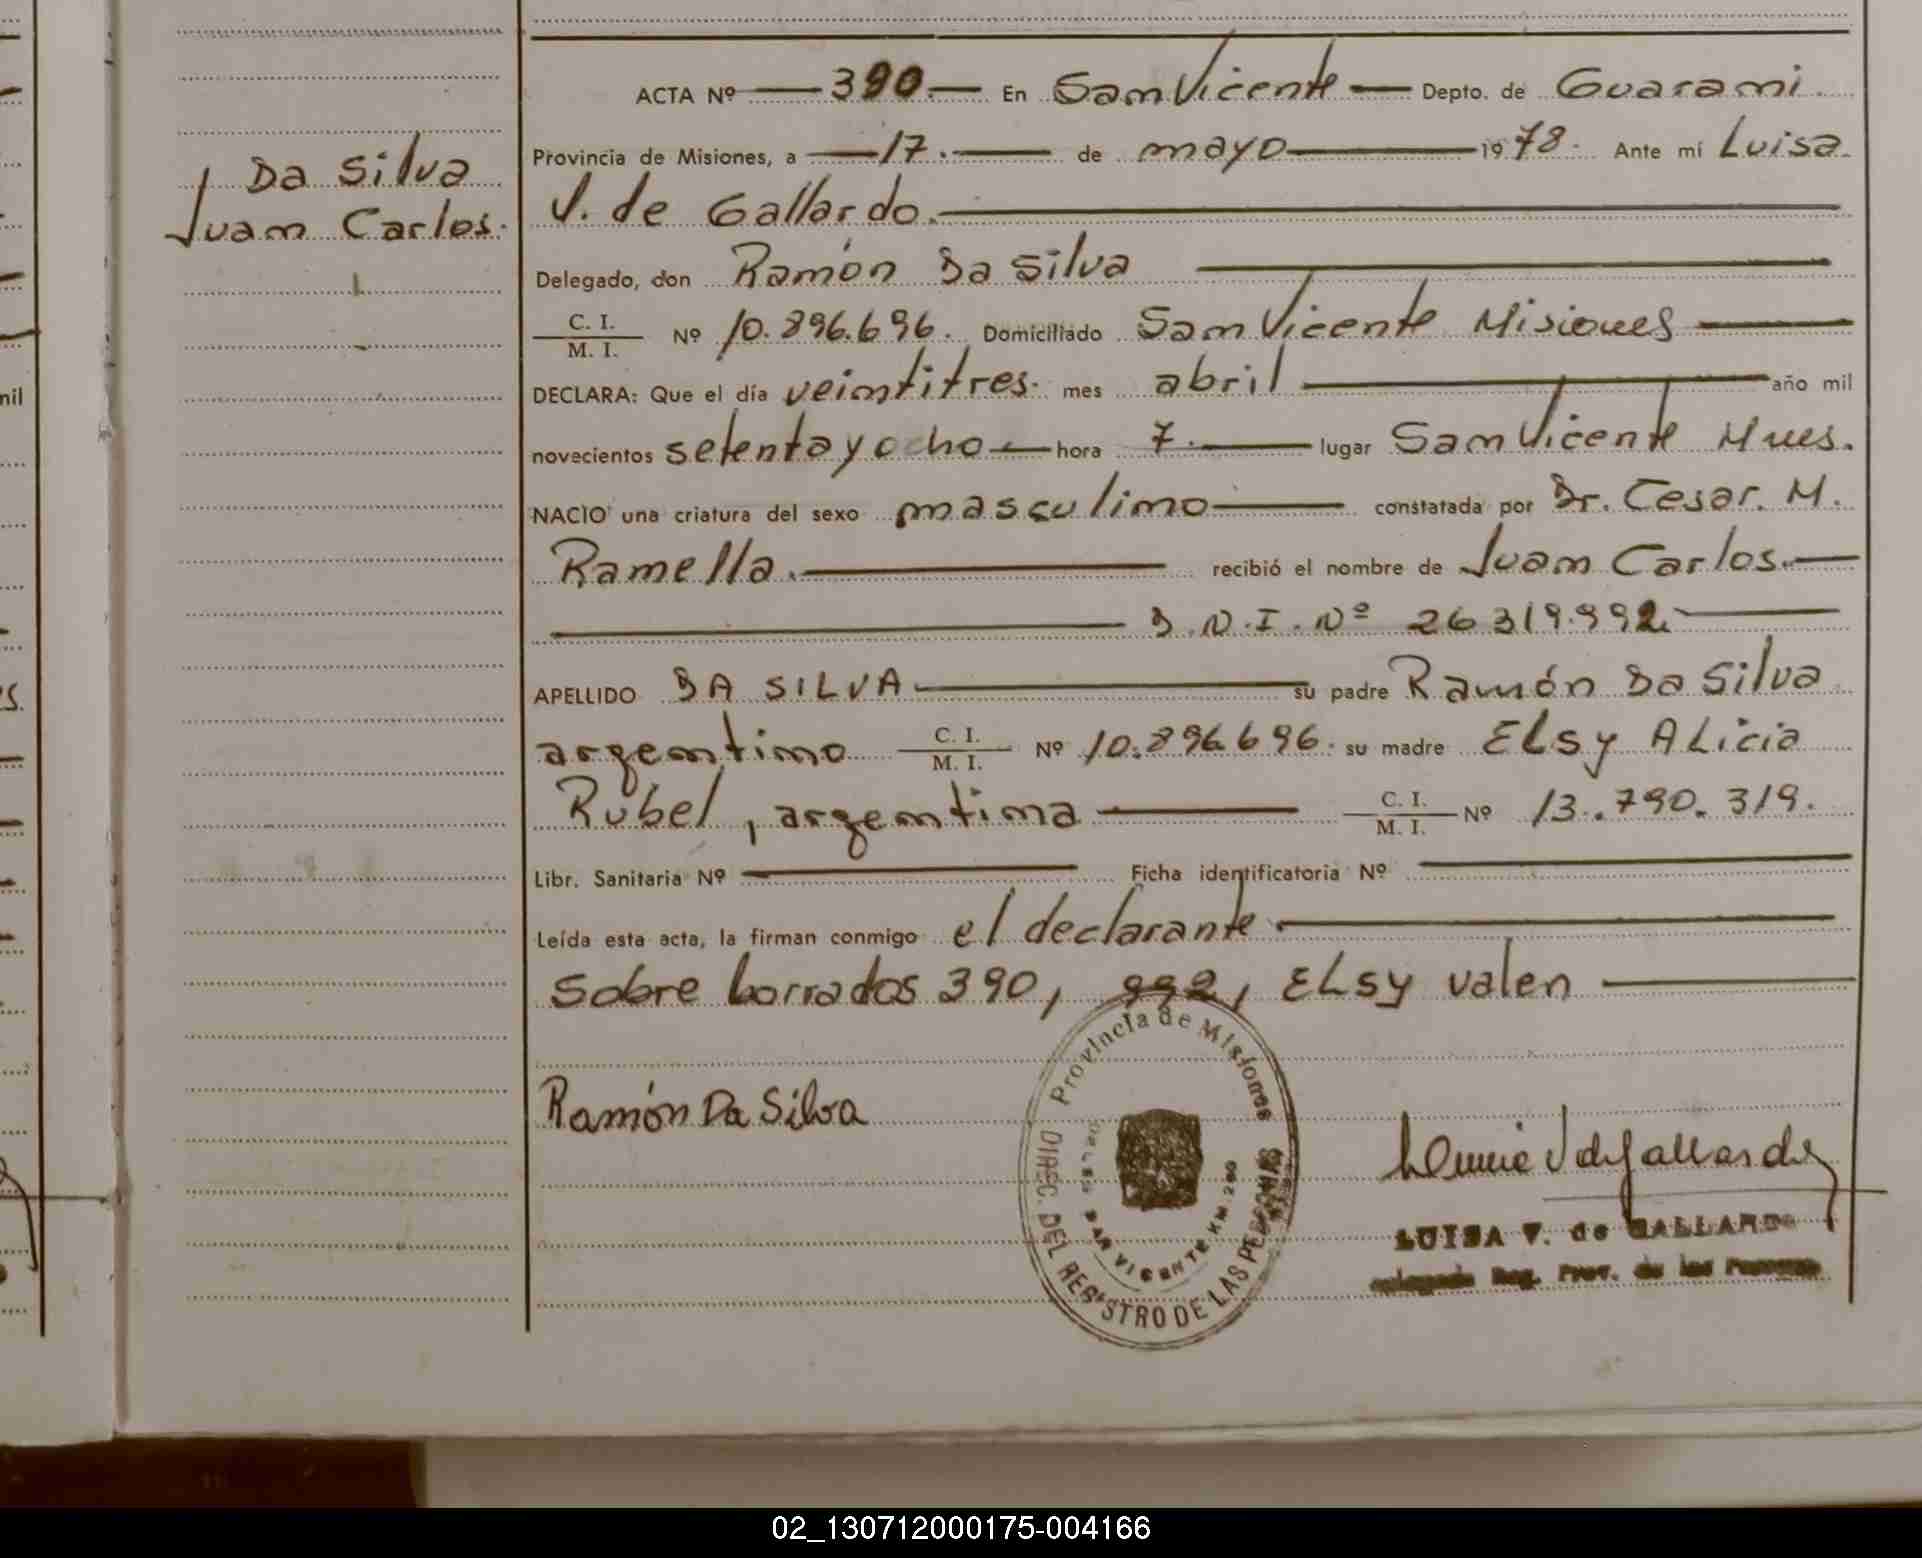 ACTA Nº 390.- En San Vicente Depto. de Guarani.
Da Silva
Juan Carlos.
Provincia de Misiones, a 17. de mayo 1978. Ante mí Luisa
V. de Gallardo.
Delegado, don Ramón Da Silva
C. I.
M. I. Nº 10.896.696. Domiciliado San Vicente Misiones
DECLARA: Que el día veintitres. mes abril año mil
novecientos setenta y ocho hora 7. lugar San Vicente Mnes.
NACIO una criatura del sexo masculino constatada por Dr. Cesar. M.
Ramella. recibió el nombre de Juan Carlos.
D.N.I. Nº 26 319.992
APELLIDO DA SILVA su padre Ramón Da Silva
argentino C. I.
M. I. Nº 10.896.696. su madre ELsy ALicia
Rubel, argentina C. I.
M. I. Nº 13.790.319.
Libr. Sanitaria Nº Ficha identificatoria Nº
Leída esta acta, la firman conmigo el declarante
Sobre borrados 390, 992, ELsy valen
Ramón Da Silva
Provincia de Misiones
DIREC. DEL REGISTRO DE LAS PERSONAS
SAN VICENTE KM.
LUISA V. de GALLARDO
Reg. Prov. de las Personas
nil
02_130712000175-004166